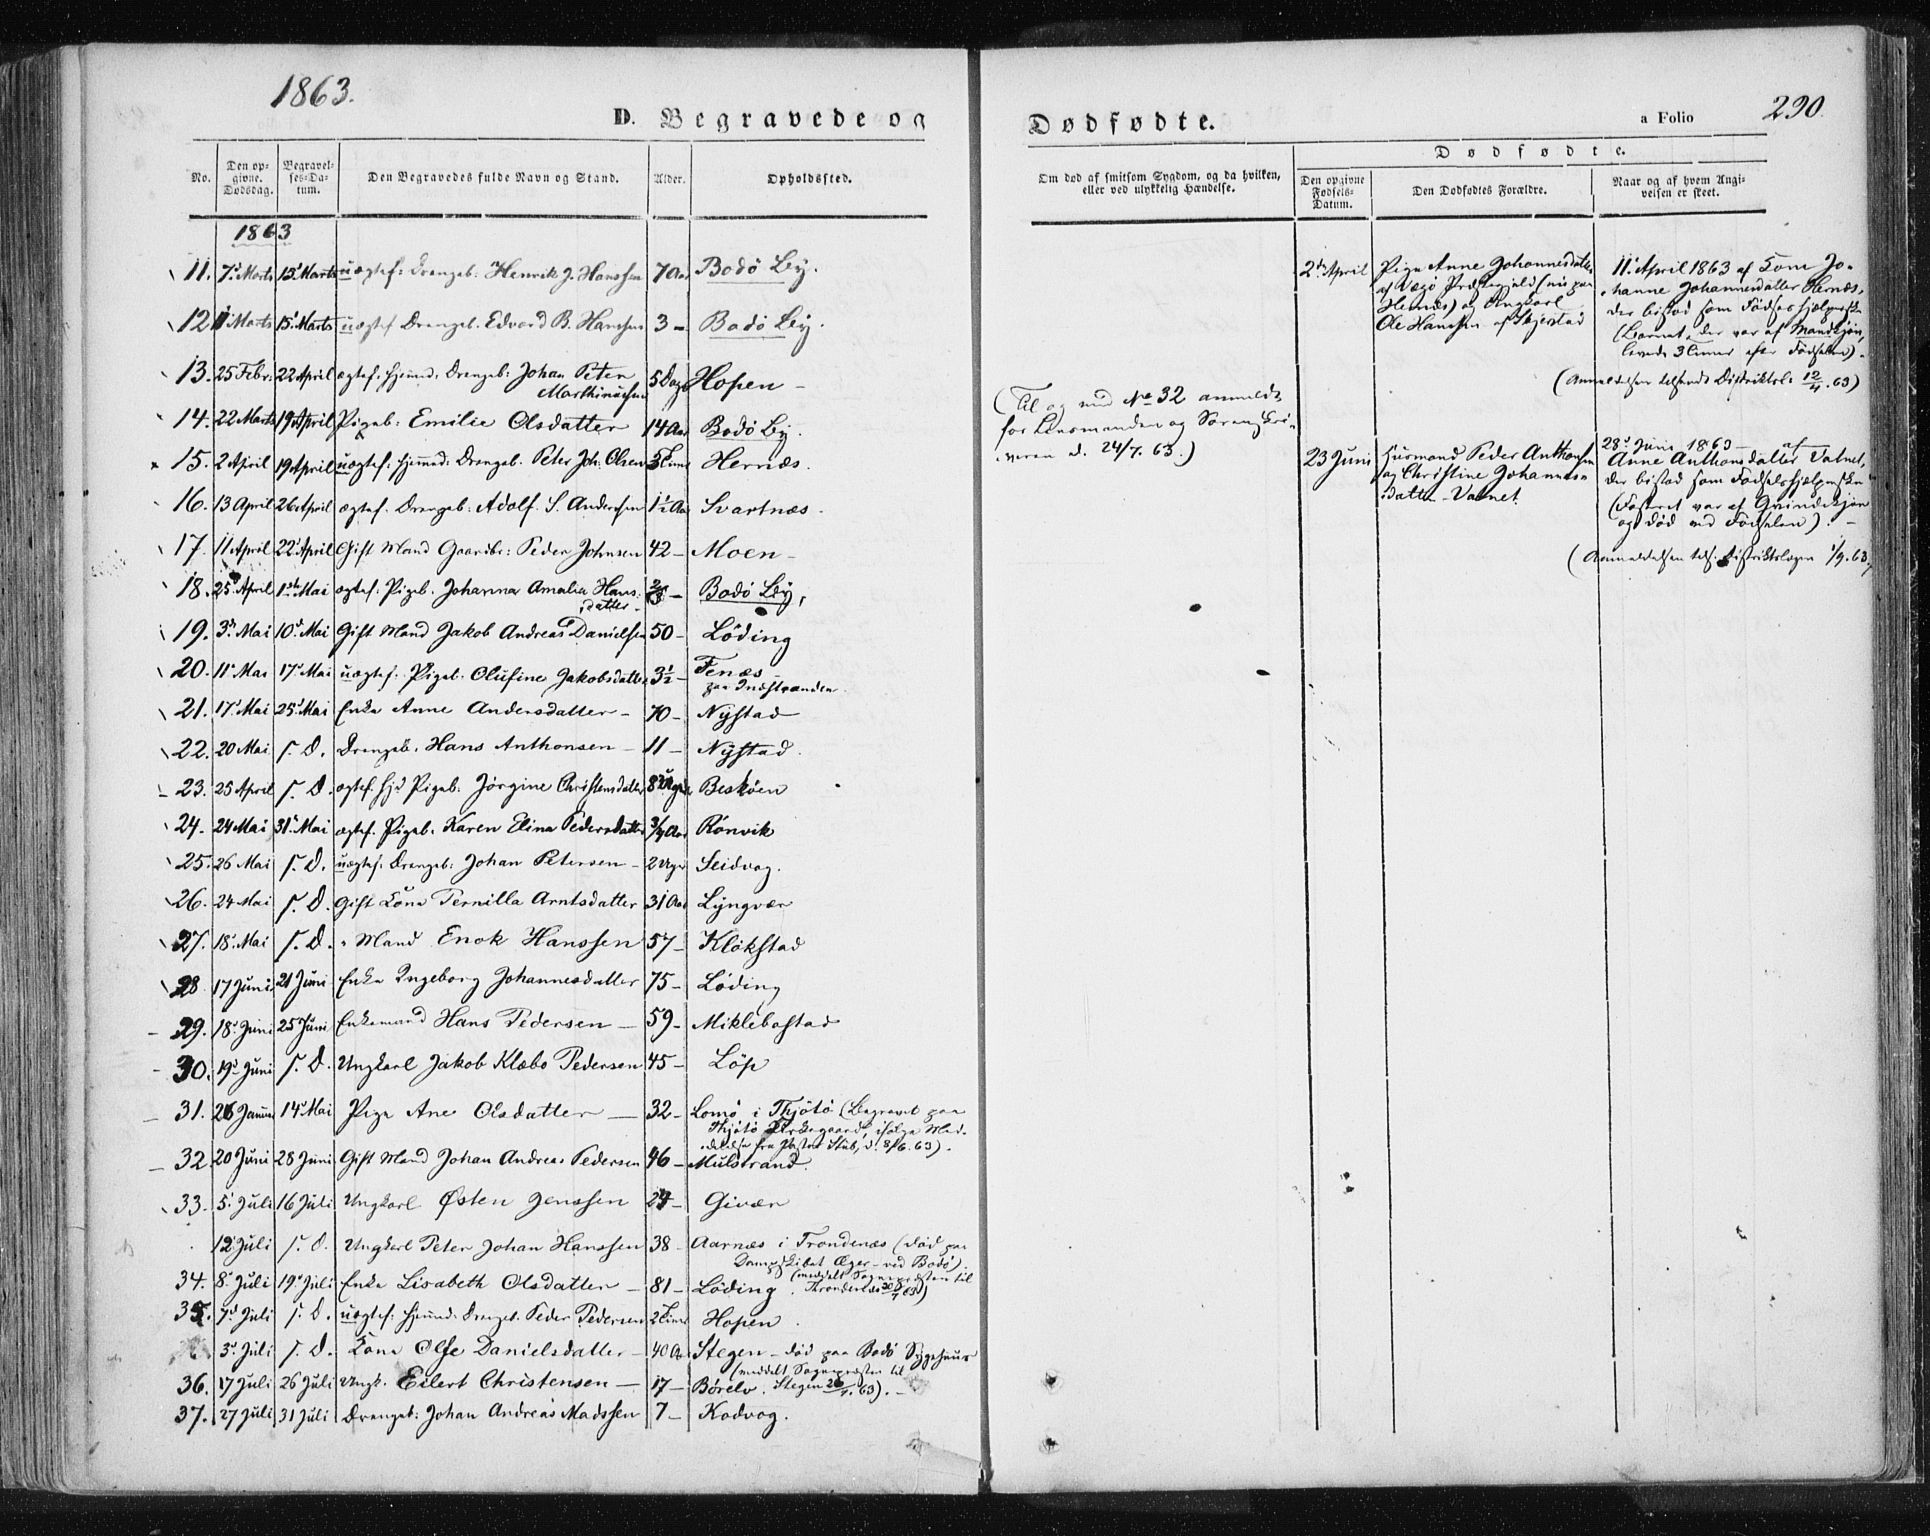 1863.
D. Begravede og
No.
Den op-
givne.
Dødsdag.
Begravel-
ses-Da-
tum.
Den Begravedes fulde Navn og Stand.
Alder.
Opholdssted.
1863
11. 7. Marts 15. Marts uægtef: Drengeb. Henrik J. Hanssen 7 Aar Bodö By.
12 11 Marts 15. Marts uægtef Drengeb. Edvard B. Hanssen 3 - Bodö By.
13. 25 Febr. 22 April ægtef. hjemd. Drengeb: Johan Peter
Marthinussen 5 Dage Hopen -
14. 22 Marts 19 April Pigeb: Emilie Olsdatter 14 Aar Bodö By.
15. 2 April 19 April uægtef: hjemmd: Drengeb. Peter Joh: Olsen Hernæs.
16. 13 April 26 April ægtef. Drengeb: Adolf. S. Andersen 1½ Aar Svartnæs.
17. 11 April 22 April Gift Mand Gaardbr: Peder Johnsen 42 - Moen -
18. 25 April 1ste Mai ægtef. Pigeb. Johanna Amalia Hans-
datter - Bodö By,
19. 3die Mai 10de Mai Gift Mand Jakob Andreas Danielsen 50 - Löding
20. 11te Mai 17. Mai uægtef. Pigeb. Olufine Jakobsdatter 3½ - Fenæs -
paa Indstranden.
21. 17. Mai 25. Mai Enke Anne Andersdatter - 70 - Nystad
22. 20 Mai s. D. Drengeb. Hans Anthonsen - 11 - Nystad.
23. 25 April s. D. ægtef. hjd Pigeb: Jörgine Christensdatter 8 Uger Besköen
24. 24 Mai 31. Mai ægtef. Pigeb. Karen Elina Pedersdatter 3/4 Aar Rönvik
25. 26 Mai s. D. uægtef: Drengeb: Johan Petersen - 2 Uger Seidvog.
26. 24 Mai s. D. Gift Kone Pernilla Arntsdatter 31 Aar Lyngvær
27. 18. Mai s. D. " Mand Enok Hanssen 57 - Klökstad
28. 17 Juni 21 Juni Enke Ingeborg Johannesdatter 75 - Löding
29. 18. Juni 25 Juni Enkemand Hans Pedersen - 59 - Miklebostad
30. 19. Juni s. D. Ungkarl Jakob Klæbo Pedersen 45 - Löp
31. 26 Januar 14. Mai Pige Ane Olsdatter - 32 - Lomö i Thjötö (Begravet paa
Thjötö Kirkegaard, ifölge Med-
delelse fra Pastor Stub, d. 8/6. 63).
32. 20 Juni 28 Juni Gift Mand Johan Andreas Pedersen 46 - Mulstrand.
33. 5. Juli 16 Juli Ungkarl Østen Jenssen 24 - Givær
12 Juli s. D. Ungkarl Peter Johan Hanssen 38 - Aarnæs i Trondenæs (död paa
Dampskibet Æger - ved Bodö).
(meddelt Sognepræsten til
34. 8. Juli 19. Juli Enke Lisabeth Olsdatter - 81 - Löding. Throndenæs 63)
35. 7. Juli s. D. uægtef: hjemmd: Drengeb. Peder Pedersen 2 Timer Hopen.
3. Juli s. D. Kone Else Danielsdatter - 40 Aar Stegen - död paa Bodö Sygehuus
(meddelt Sognepræsten til
36. 17 Juli 26 Juli Ungk. Eilert Christensen - 17 - Börelv. Stegen 26/7. 63). -
37. 27 Juli 31 Juli Drengeb: Johan Andreas Madssen 7 - Kodvog.
Dødfødte.
a Folio 290.
Om død af smitsom Sygdom, og da hvilken,
eller ved ulykkelig Hændelse.
Dødfødte.
Den opgivne
Fødsels-
Datum.
Den Dødfødtes Forældre.
Naar og af hvem Angi-
velsen er skeet.
2den April Pige Anne Johannesdatter
af Vegö Præstegjeld (nu paa
Hernæs) og Ungkarl
Ole Hanssen af Skjerstad
11. April 1863 af Kone Jo-
hanne Johannesdatter Hernæs,
der bistod som Födselshjælperske
(Barnet, der var af Mandkjön,
levede 3 Timer efter Födselen).
(Anmeldelsen tilsendt Distriktsl. 12/4. 63)
(Til og med No 32 anmeldt
for Lensmanden og Sorenskri-
veren d. 24/7. 63.)
23 Juni Huusmand Peder Anthonsen
og Christine Johannes-
datter - Vatnet
28. Juni 1863 - af
Anne Anthonsdatter Vatnet,
der bistod som Födselshjælperske
(Fosteret var af Qvindekjön
og död ved Födselen). -
(Anmeldelsen tils. Distriktslægen 1/9. 63.)